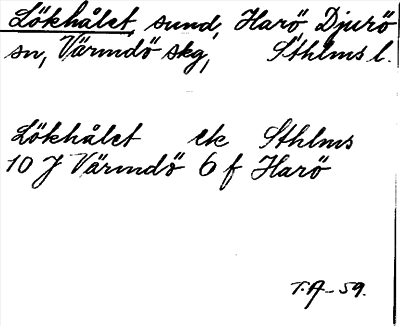 Lökhålet, sund, Harö, Djurö
sn, Värmdö skg, Sthlms l.
Lökhålet ek Sthlms
10 J Värmdö 6 f Harö
T.A-59.